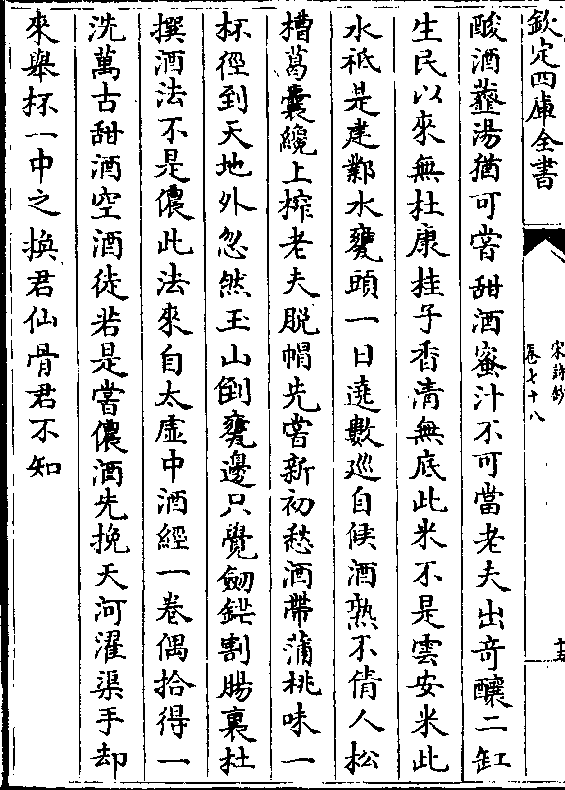 欽定四庫全書
宋詩鈔
卷七十八
酸酒虀湯猶可嘗甜酒蜜汁不可當老夫出竒釀二缸
生民以來無杜康桂子香清無底此米不是雲安米此
水祗是建鄴水甕頭一日遶數巡自候酒熟不倩人松
槽葛囊纔上榨老夫脱帽先嘗新初愁酒帶蒲桃味一
杯徑到天地外忽然玉山倒甕邊只覺劒鋩割腸裏杜
撰酒法不是儂此法來自太虛中酒經一卷偶拾得一
洗萬古甜酒空酒徒若是嘗儂酒先挽天河濯渠手却
來舉杯一中之換君仙骨君不知